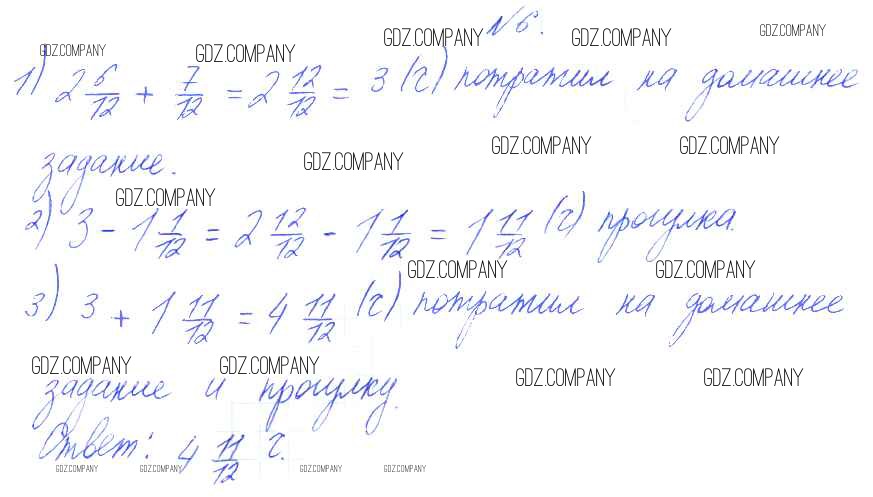 №6.
1) 2 5/12 + 7/12 = 2 12/12 = 3 (ч) потратил на домашнее
задание.
2) 3 - 1 1/12 = 2 12/12 - 1 1/12 = 1 11/12 (ч) прогулка.
3) 3 + 1 11/12 = 4 11/12 (ч) потратил на домашнее
задание и прогулку.
Ответ: 4 11/12 ч.
GDZ.COMPANY GDZ.COMPANY GDZ.COMPANY GDZ.COMPANY GDZ.COMPANY
GDZ.COMPANY GDZ.COMPANY GDZ.COMPANY
GDZ.COMPANY
GDZ.COMPANY GDZ.COMPANY
GDZ.COMPANY GDZ.COMPANY GDZ.COMPANY GDZ.COMPANY
GDZ.COMPANY GDZ.COMPANY GDZ.COMPANY GDZ.COMPANY